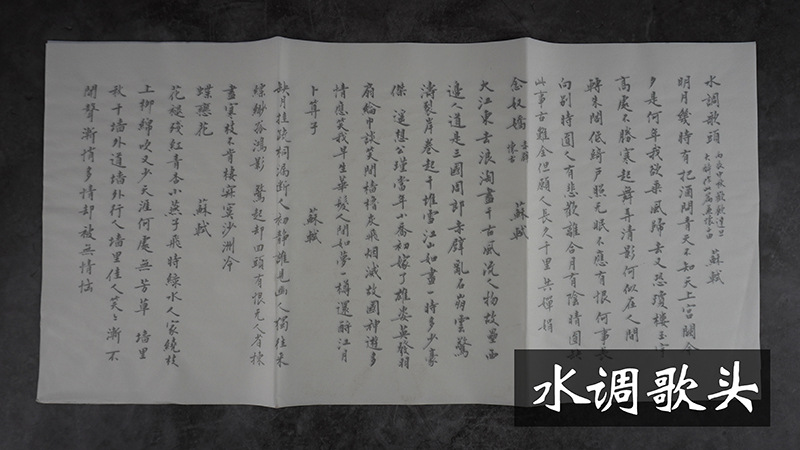 水調歌頭 丙辰中秋歡飲達旦
大醉作此篇兼懷子由 蘇軾
明月幾時有把酒問青天不知天上宮闕今
夕是何年我欲乘風歸去又恐瓊樓玉宇
高處不勝寒起舞弄清影何似在人間
轉朱閣低綺戶照无眠不應有恨何事長
向別時圓人有悲歡離合月有陰晴圓缺
此事古難全但願人長久千里共嬋娟
念奴嬌 赤壁
懷古 蘇軾
大江東去浪淘盡千古風流人物故壘西
邊人道是三國周郎赤壁亂石崩雲驚
濤裂岸卷起千堆雪江山如畫一時多少豪
傑 遙想公瑾當年小喬初嫁了雄姿英發羽
扇綸巾談笑間檣櫓灰飛煙滅故國神遊多
情應笑我早生華髮人間如夢一樽還酹江月
卜算子 蘇軾
缺月挂疏桐漏斷人初静誰見幽人獨往来
縹緲孤鴻影 驚起却回頭有恨无人省揀
盡寒枝不肯棲寂寞沙洲冷
蝶戀花 蘇軾
花褪殘紅青杏小燕子飛時綠水人家繞枝
上柳綿吹又少天涯何處無芳草 墙里
秋千墙外道墙外行人墙里佳人笑笑漸不
聞聲漸悄多情却被無情惱
水调歌头